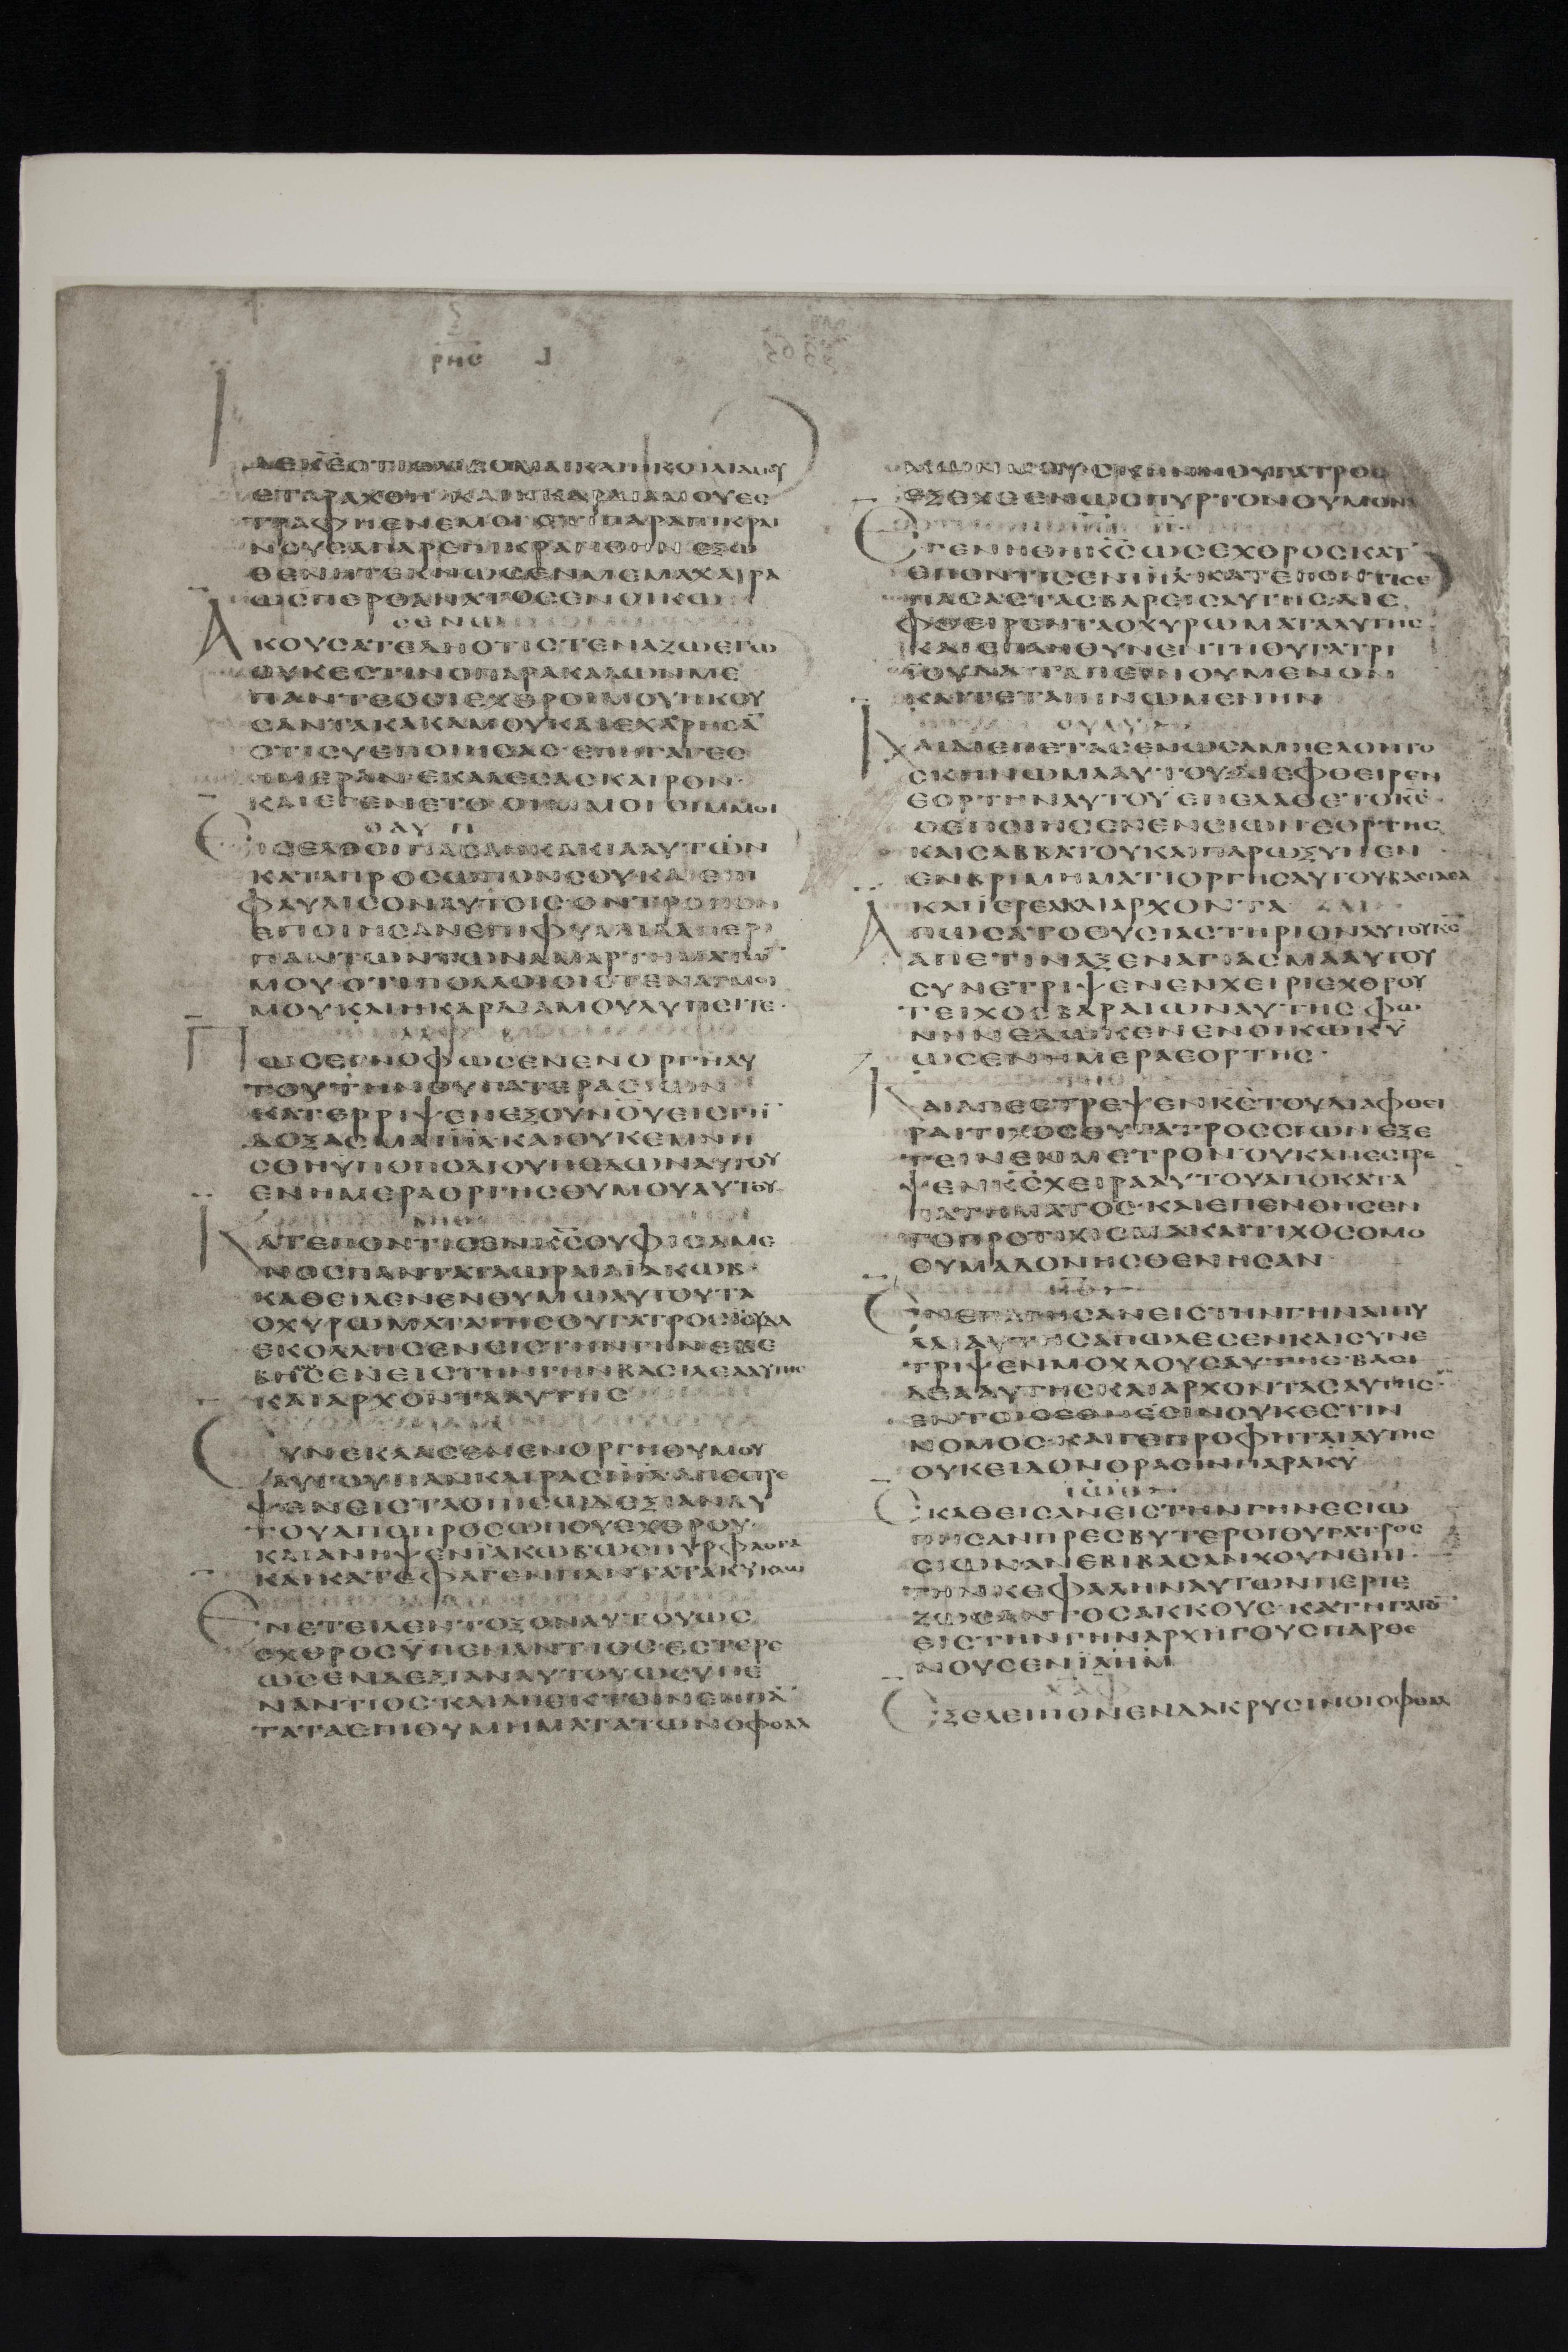 ΡΗϹ
ΙΔΕΚ̅Ε̅ΟΤΙΘΛΙΒΟΜΑΙΚΑΙΗΚΟΙΛΙΑΜΟΥ
ΕΤΑΡΑΧΘΗΚΑΙΗΚΑΡΔΙΑΜΟΥΕϹ
ΤΡΑΦΗΕΝΕΜΟΙΟΤΙΠΑΡΑΠΙΚΡΑΙ
ΝΟΥϹΑΠΑΡΕΠΙΚΡΑΝΘΗΝΕΞΩ
ΘΕΝΗΤΕΚΝΩϹΕΝΜΕΜΑΧΑΙΡΑ
ΩϹΠΕΡΘΑΝΑΤΟϹΕΝΟΙΚΩ
ϹΕΝ
ΑΚΟΥϹΑΤΕΔΗΟΤΙϹΤΕΝΑΖΩΕΓΩ
ΟΥΚΕϹΤΙΝΟΠΑΡΑΚΑΛΩΝΜΕ
ΠΑΝΤΕϹΟΙΕΧΘΡΟΙΜΟΥΗΚΟΥ
ϹΑΝΤΑΚΑΚΑΜΟΥΚΑΙΕΧΑΡΗϹΑ̅
ΟΤΙϹΥΕΠΟΙΗϹΑϹ·ΕΠΗΓΑΓΕϹ
ΗΜΕΡΑΝ·ΕΚΑΛΕϹΑϹΚΑΙΡΟΝ·
ΚΑΙΕΓΕΝΕΤΟΟΜΟΙΟΙΜΟΙ
ΘΑΥ
ΕΙϹΕΛΘΟΙΠΑϹΑΗΚΑΚΙΑΑΥΤΩΝ
ΚΑΤΑΠΡΟϹΩΠΟΝϹΟΥΚΑΙΕΠΙ
ΦΑΥΛΙϹΟΝΑΥΤΟΙϹΟΝΤΡΟΠΟΝ
ΕΠΟΙΗϹΑΝΕΠΙΦΥΛΛΙΔΑΠΕΡΙ
ΠΑΝΤΩΝΤΩΝΑΜΑΡΤΗΜΑΤΩ̅
ΜΟΥΟΤΙΠΟΛΛΟΙΟΙϹΤΕΝΑΓΜΟΙ
ΜΟΥΚΑΙΗΚΑΡΔΙΑΜΟΥΛΥΠΕΙΤΕ·
ΠΩϹΕΓΝΟΦΩϹΕΝΕΝΟΡΓΗΑΥ
ΤΟΥΤΗΝΘΥΓΑΤΕΡΑϹΙΩΝ
ΚΑΤΕΡΡΙΨΕΝΕΞΟΥΝΟΥΕΙϹΓΗ̅
ΔΟΞΑϹΜΑΙ̅Η̅Λ̅ΚΑΙΟΥΚΕΜΝΗ
ϹΘΗΥΠΟΠΟΔΙΟΥΠΟΔΩΝΑΥΤΟΥ
ΕΝΗΜΕΡΑΟΡΓΗϹΘΥΜΟΥΑΥΤΟΥ
ΚΑΤΕΠΟΝΤΙϹΕΝΚ̅Ϲ̅ΟΥΦΙϹΑΜΕ
ΝΟϹΠΑΝΤΑΤΑΩΡΑΙΑΙΑΚΩΒ·
ΚΑΘΕΙΛΕΝΕΝΘΥΜΩΑΥΤΟΥΤΑ
ΟΧΥΡΩΜΑΤΑΤΗϹΘΥΓΑΤΡΟϹΙΟΥΔΑ
ΕΚΟΛΛΗϹΕΝΕΙϹΤΗΝΓΗΝΕΒΕ
ΒΗϹΕΝΕΙϹΤΗΝΓΗΝΒΑϹΙΛΕΑΑΥΤΗϹ
ΚΑΙΑΡΧΟΝΤΑΑΥΤΗϹ
ϹΥΝΕΚΛΑϹΕΝΕΝΟΡΓΗΘΥΜΟΥ
ΑΥΤΟΥΠΑΝΚΑΙΡΑϹΙ̅Η̅Λ̅ΑΠΕϹΤΡΕ
ΨΕΝΕΙϹΤΑΟΠΙϹΩΔΕΞΙΑΝΑΥ
ΤΟΥΑΠΟΠΡΟϹΩΠΟΥΕΧΘΡΟΥ·
ΚΑΙΑΝΗΨΕΝΙΑΚΩΒΩϹΠΥΡΦΛΟΓΑ
ΚΑΙΚΑΤΕΦΑΓΕΝΠΑΝΤΑΤΑΚΥΚΛΩ
ΕΝΕΤΕΙΝΕΝΤΟΞΟΝΑΥΤΟΥΩϹ
ΕΧΘΡΟϹΥΠΕΝΑΝΤΙΟϹ·ΕϹΤΕΡΕ
ΩϹΕΝΔΕΞΙΑΝΑΥΤΟΥΩϹΥΠΕ
ΝΑΝΤΙΟϹ·ΚΑΙΑΠΕΚΤΕΙΝΕΝΠΑ̅
ΤΑΤΑΕΠΙΘΥΜΗΜΑΤΑΤΩΝΟΦΘΑΛ
ΜΩΝΜΟΥϹΚΗΝΗΘΥΓΑΤΡΟϹ
ΕΞΕΧΕΕΝΩϹΠΥΡΤΟΝΘΥΜΟΝ
ΕΓΕΝΗΘΗΚ̅Ϲ̅ΩϹΕΧΘΡΟϹΚΑΤ
ΕΠΟΝΤΙϹΕΝΙ̅Η̅Λ̅·ΚΑΤΕΠΟΝΤΙϹΕ
ΠΑϹΑϹΤΑϹΒΑΡΕΙϹΑΥΤΗϹ·ΔΙΕ
ΦΘΕΙΡΕΝΤΑΟΧΥΡΩΜΑΤΑΑΥΤΗϹ
ΚΑΙΕΠΛΗΘΥΝΕΝΤΗΘΥΓΑΤΡΙ
ΙΟΥΔΑΤΑΠΕΙΝΟΥΜΕΝΟΝ
ΚΑΙΤΕΤΑΠΙΝΩΜΕΝΗΝ
ΟΥΑΥ
ΚΑΙΔΙΕΠΕΤΑϹΕΝΩϹΑΜΠΕΛΟΝΤΟ
ϹΚΗΝΩΜΑΑΥΤΟΥΔΙΕΦΘΕΙΡΕΝ
ΕΟΡΤΗΝΑΥΤΟΥΕΠΕΛΑΘΕΤΟΚ̅Ϲ̅·
ΟΕΠΟΙΗϹΕΝΕΝϹΙΩΝΕΟΡΤΗϹ
ΚΑΙϹΑΒΒΑΤΟΥΚΑΙΠΑΡΩΞΥΝΕΝ
ΕΝΒΡΙΜΗΜΑΤΙΟΡΓΗϹΑΥΤΟΥΒΑϹΙΛΕΑ
ΚΑΙΙΕΡΕΑΚΑΙΑΡΧΟΝΤΑ
ΑΠΩϹΑΤΟΘΥϹΙΑϹΤΗΡΙΟΝΑΥΤΟΥΚ̅Ϲ̅
ΑΠΕΤΙΝΑΞΕΝΑΓΙΑϹΜΑΑΥΤΟΥ
ϹΥΝΕΤΡΙΨΕΝΕΝΧΕΙΡΙΕΧΘΡΟΥ
ΤΕΙΧΟϹΒΑΡΑΙΩΝΑΥΤΗϹΦΩ
ΝΗΝΕΔΩΚΕΝΕΝΟΙΚΩΚ̅Υ̅
ΩϹΕΝΗΜΕΡΑΕΟΡΤΗϹ·
ΚΑΙΑΠΕϹΤΡΕΨΕΝΚ̅Ϲ̅ΤΟΥΔΙΑΦΘΕΙ
ΡΑΙΤΙΧΟϹΘΥΓΑΤΡΟϹϹΙΩΝΕΞΕ
ΤΕΙΝΕΝΜΕΤΡΟΝΟΥΚΑΠΕϹΤΡΕ
ΨΕΝΚ̅Ϲ̅ΧΕΙΡΑΑΥΤΟΥΑΠΟΚΑΤΑ
ΠΑΤΗΜΑΤΟϹ·ΚΑΙΕΠΕΝΘΗϹΕΝ
ΤΟΠΡΟΤΙΧΙϹΜΑΚΑΙΤΙΧΟϹΟΜΟ
ΘΥΜΑΔΟΝΗϹΘΕΝΗϹΑΝ
ΕΝΕΠΑΓΗϹΑΝΕΙϹΤΗΝΓΗΝΑΙΠΥ
ΛΑΙΑΥΤΗϹΑΠΩΛΕϹΕΝΚΑΙϹΥΝΕ
ΤΡΙΨΕΝΜΟΧΛΟΥϹΑΥΤΗϹ·ΒΑϹΙ
ΛΕΑΑΥΤΗϹΚΑΙΑΡΧΟΝΤΑϹΑΥΤΗϹ·
ΕΝΤΟΙϹΕΘΝΕϹΙΝΟΥΚΕϹΤΙΝ
ΝΟΜΟϹ·ΚΑΙΓΕΠΡΟΦΗΤΑΙΑΥΤΗϹ
ΟΥΚΕΙΔΟΝΟΡΑϹΙΝΠΑΡΑΚ̅Υ̅
ΙΩΘ
ΕΚΑΘΕΙϹΑΝΕΙϹΤΗΝΓΗΝΕϹΙΩ
ΠΗϹΑΝΠΡΕϹΒΥΤΕΡΟΙΘΥΓΑΤΡΟϹ
ϹΙΩΝΑΝΕΒΙΒΑϹΑΝΧΟΥΝΕΠΙ
ΤΗΝΚΕΦΑΛΗΝΑΥΤΩΝΠΕΡΙΕ
ΖΩϹΑΝΤΟϹΑΚΚΟΥϹ·ΚΑΤΗΓΑΓΟ̅
ΕΙϹΤΗΝΓΗΝΑΡΧΗΓΟΥϹΠΑΡΘΕ
ΝΟΥϹΕΝΙ̅Λ̅Η̅Μ̅
ΕΞΕΛΕΙΠΟΝΕΝΔΑΚΡΥϹΙΝΟΙΟΦΘΑΛ